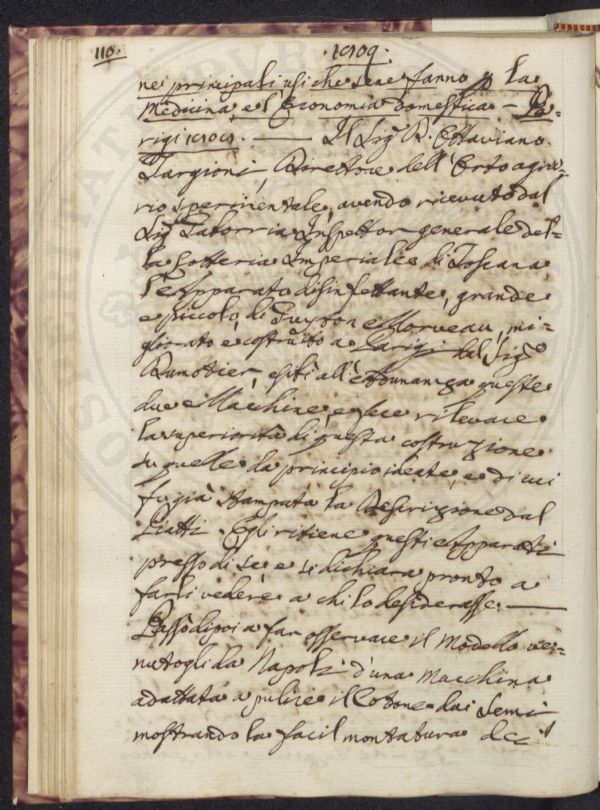 110.
1809.
ne' principali usi che se ne fanno p la
Medicina, e l'Economia domestica - Pa=
rigi 1809. —— Il Sig.r D. Ottaviano
Targioni, Direttore dell'Orto agra=
rio sperimentale, avendo ricevuto dal
Sig.r Inspettor generale del=
la Lotteria Imperiale di Toscana
l'Apparato disinfettante, grande
e piccolo, di Guyton Morveau, mi=
gliorato e costruito a Parigi dal Sig.e
Dumotier, esibì all'Adunanza queste
due Macchine, e fece rilevare
la superiorità di questa costruzione
su quelle da principio ideate, e di cui
fu già stampata la Descrizione dal
Piatti. Egli ritiene questi Apparati
presso di se, e si dichiara pronto a
farli vedere a chi lo desiderasse. ——
Passò dipoi a far osservare il modello ve=
nutogli da Napoli d'una Macchina
adattata a pulire il Cotone dai Semi
mostrando la facil montatura de